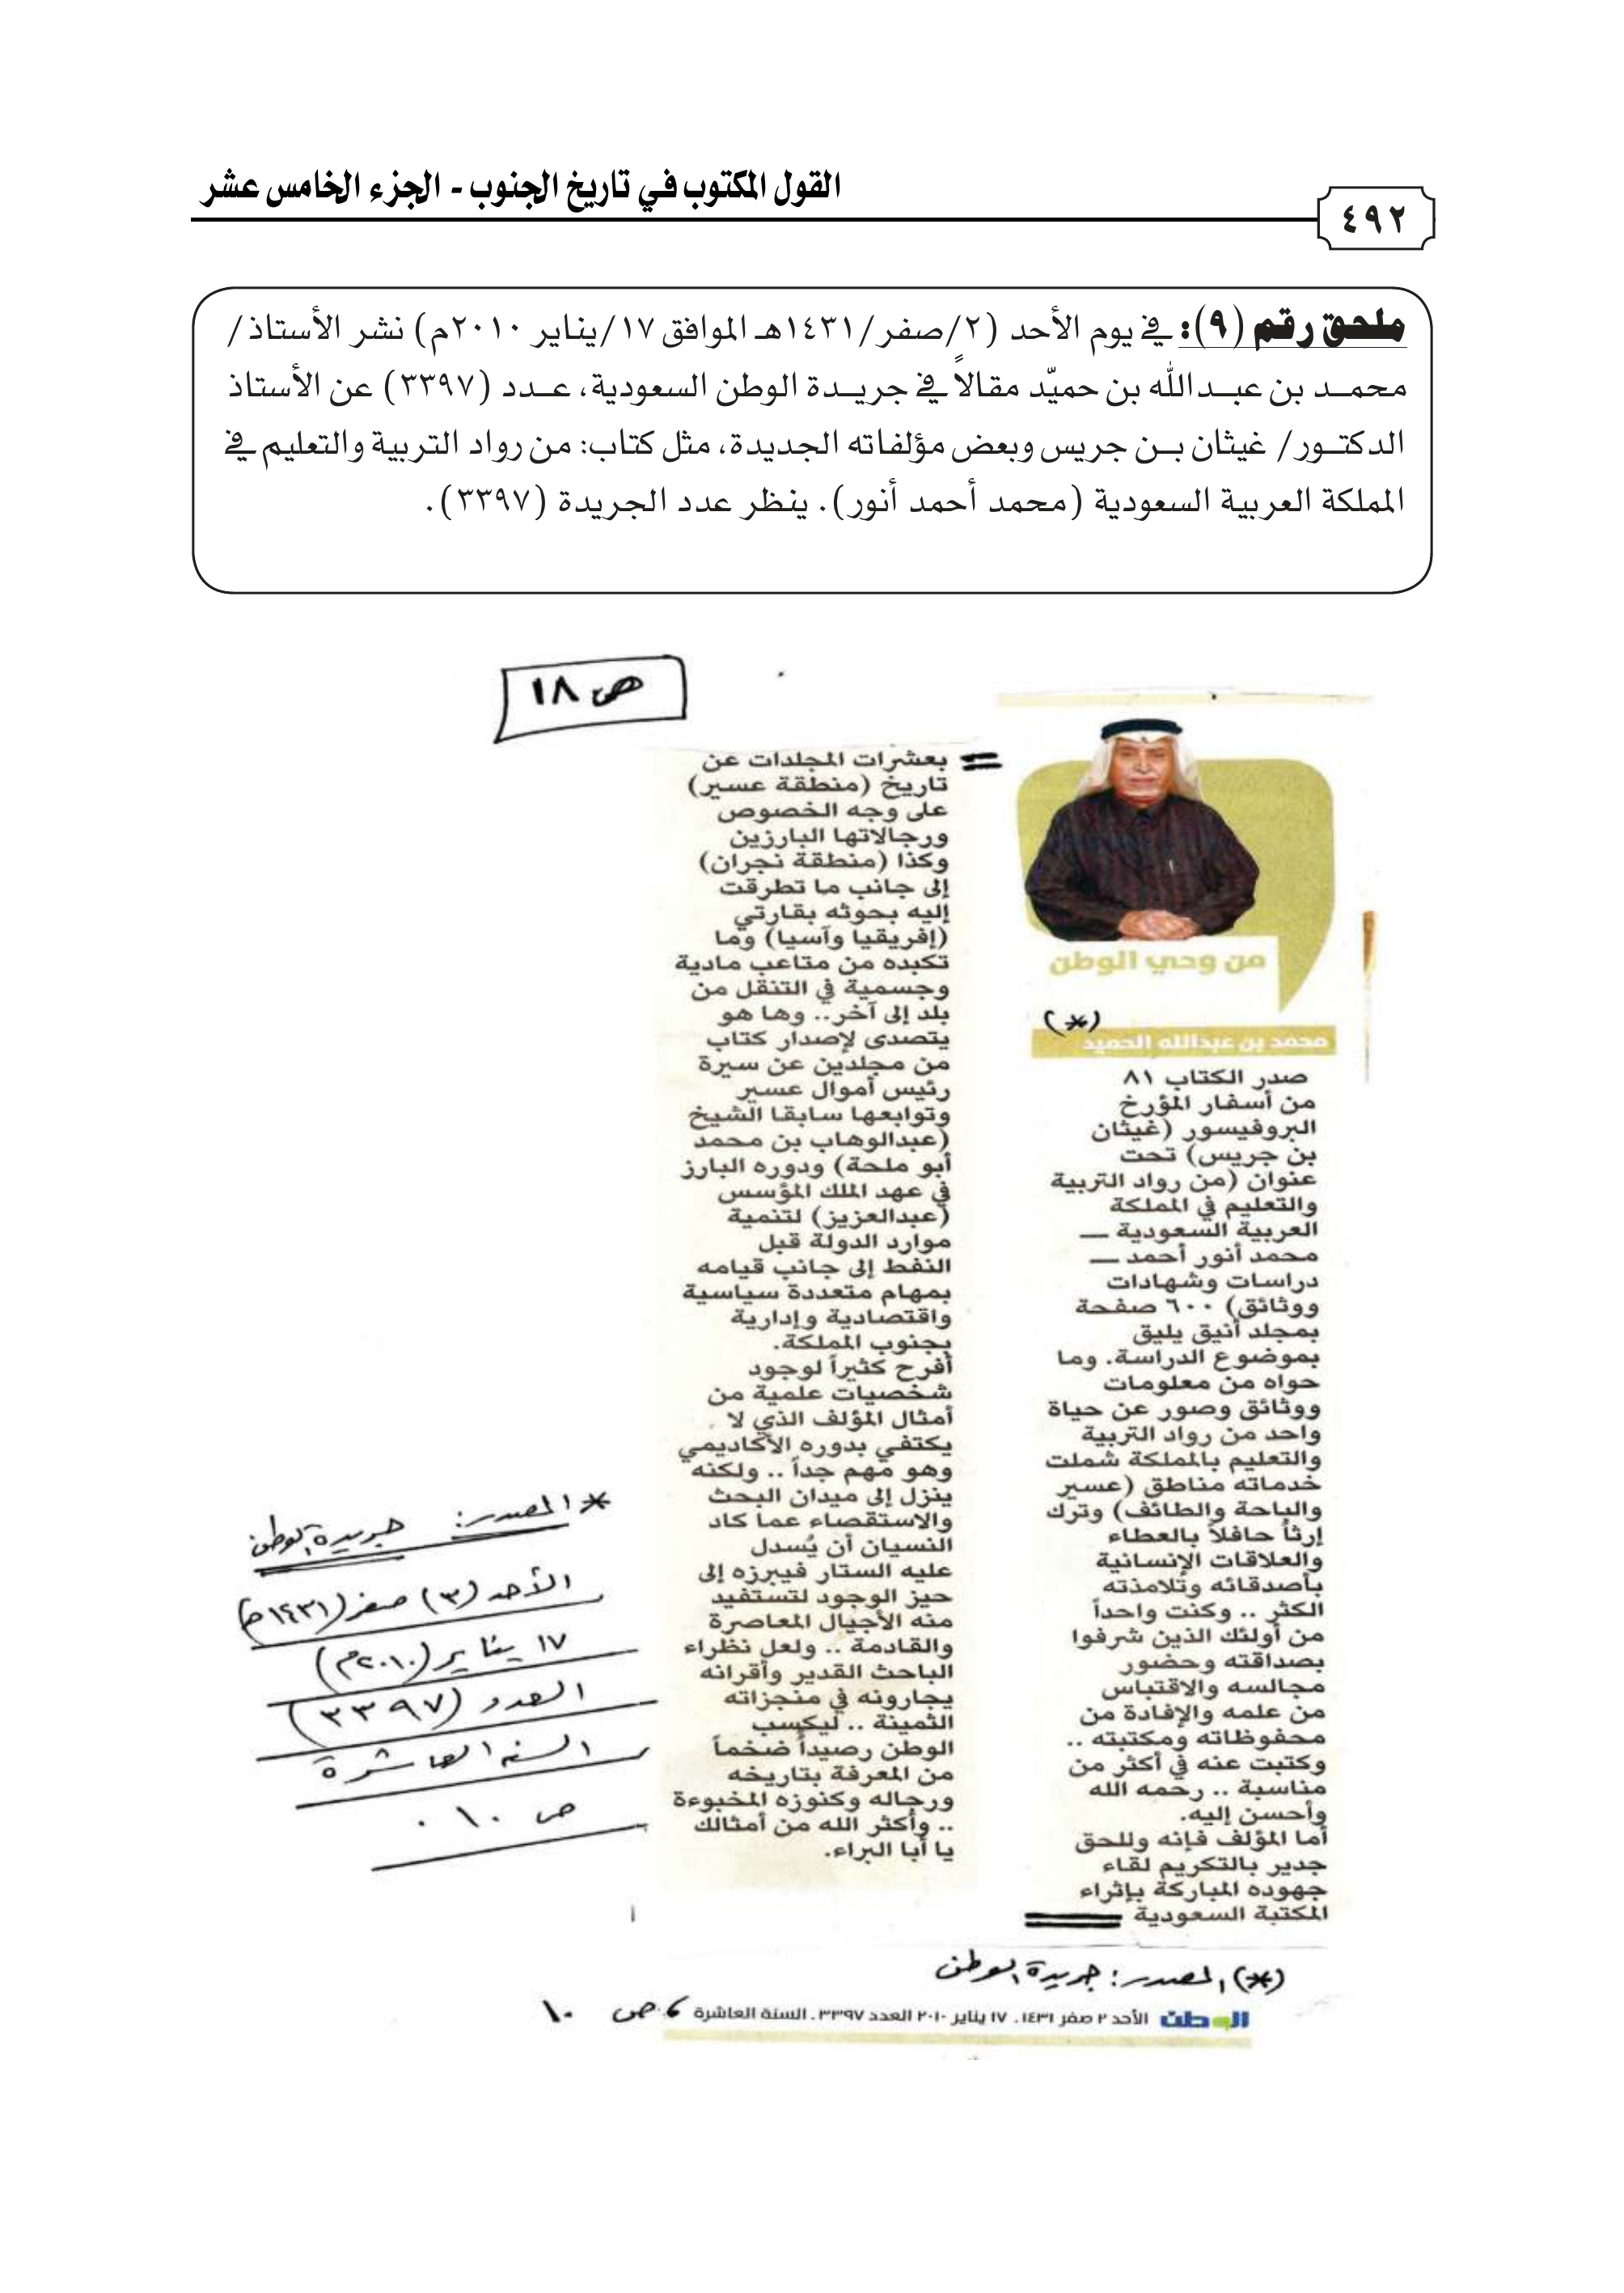 القول المكتوب في تاريخ الجنوب - الجزء الخامس عشر
٤٩٢
ملحق رقم (٩): في يوم الأحد (٢/صفر/١٤٣١هـ الموافق ١٧/يناير ٢٠١٠م) نشر الأستاذ/
محمد بن عبدالله بن حميّد مقالاً في جريدة الوطن السعودية، عدد (٣٣٩٧) عن الأستاذ
الدكتور/ غيثان بن جريس وبعض مؤلفاته الجديدة، مثل كتاب: من رواد التربية والتعليم في
المملكة العربية السعودية (محمد أحمد أنور). ينظر عدد الجريدة (٣٣٩٧).
ص ١٨
من وحي الوطن
(*)
محمد بن عبدالله الحميد
صدر الكتاب ٨١
من أسفار المؤرخ
البروفيسور (غيثان
بن جريس) تحت
عنوان (من رواد التربية
والتعليم في المملكة
العربية السعودية —
محمد أنور أحمد —
دراسات وشهادات
ووثائق) ٦٠٠ صفحة
بمجلد أنيق يليق
بموضوع الدراسة. وما
حواه من معلومات
ووثائق وصور عن حياة
واحد من رواد التربية
والتعليم بالمملكة شملت
خدماته مناطق (عسير
والباحة والطائف) وترك
إرثاً حافلاً بالعطاء
والعلاقات الإنسانية
بأصدقائه وتلامذته
الكثر .. وكنت واحداً
من أولئك الذين شرفوا
بصداقته وحضور
مجالسه والاقتباس
من علمه والإفادة من
محفوظاته ومكتبته ..
وكتبت عنه في أكثر من
مناسبة .. رحمه الله
وأحسن إليه.
أما المؤلف فإنه وللحق
جدير بالتكريم لقاء
جهوده المباركة بإثراء
المكتبة السعودية
بعشرات المجلدات عن
تاريخ (منطقة عسير)
على وجه الخصوص
ورجالاتها البارزين
وكذا (منطقة نجران)
إلى جانب ما تطرقت
إليه بحوثه بقارتي
(إفريقيا وآسيا) وما
تكبده من متاعب مادية
وجسمية في التنقل من
بلد إلى آخر.. وها هو
يتصدى لإصدار كتاب
من مجلدين عن سيرة
رئيس أموال عسير
وتوابعها سابقا الشيخ
(عبدالوهاب بن محمد
أبو ملحة) ودوره البارز
في عهد الملك المؤسس
(عبدالعزيز) لتنمية
موارد الدولة قبل
النفط إلى جانب قيامه
بمهام متعددة سياسية
واقتصادية وإدارية
بجنوب المملكة.
أفرح كثيراً لوجود
شخصيات علمية من
أمثال المؤلف الذي لا
يكتفي بدوره الأكاديمي
وهو مهم جداً .. ولكنه
ينزل إلى ميدان البحث
والاستقصاء عما كاد
النسيان أن يُسدل
عليه الستار فيبرزه إلى
حيز الوجود لتستفيد
منه الأجيال المعاصرة
والقادمة .. ولعل نظراء
الباحث القدير وأقرانه
يجارونه في منجزاته
الثمينة .. ليكسب
الوطن رصيداً ضخماً
من المعرفة بتاريخه
ورجاله وكنوزه المخبوءة
.. وأكثر الله من أمثالك
يا أبا البراء.
* المصدر: جريدة الوطن
الأحد (٣) صفر (١٤٣١هـ)
١٧ يناير (٢٠١٠م)
العدد (٣٣٩٧)
السنة العاشرة
ص ١٠.
(*) المصدر: جريدة الوطن
الوطن الأحد ٢ صفر ١٤٣١، ١٧ يناير ٢٠١٠ العدد ٣٣٩٧، السنة العاشرة ، ص ١٠